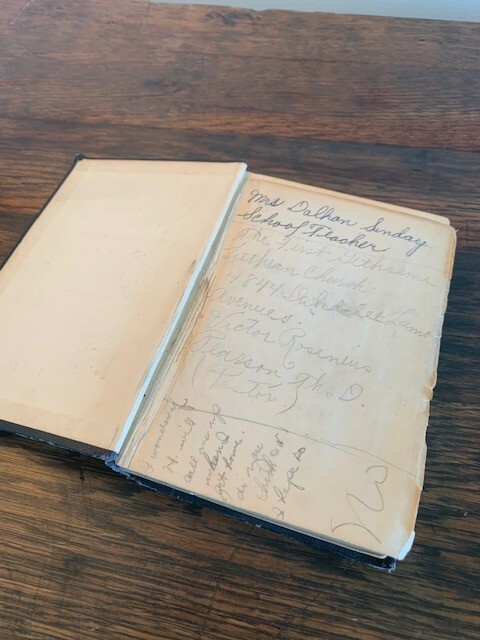 Mrs Dalhan Sunday
School Teacher
The First Gethsemi
Lutheran Church.
4844 Oakdale
Avenues.
Victor Rosenius
Pearson Th. D.
(Pastor)
I wonder if
H. will
call me up
when I
get home.
do you
I hope so
No